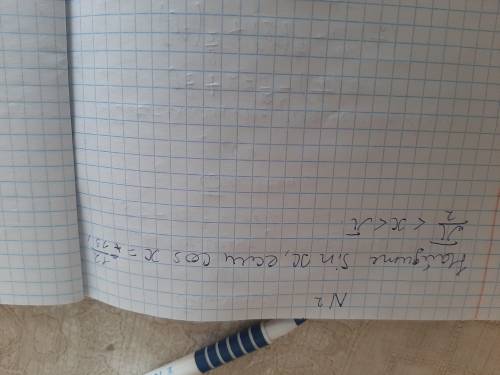 N2
Найдите sin x, если cos x =
π/2 < x < π